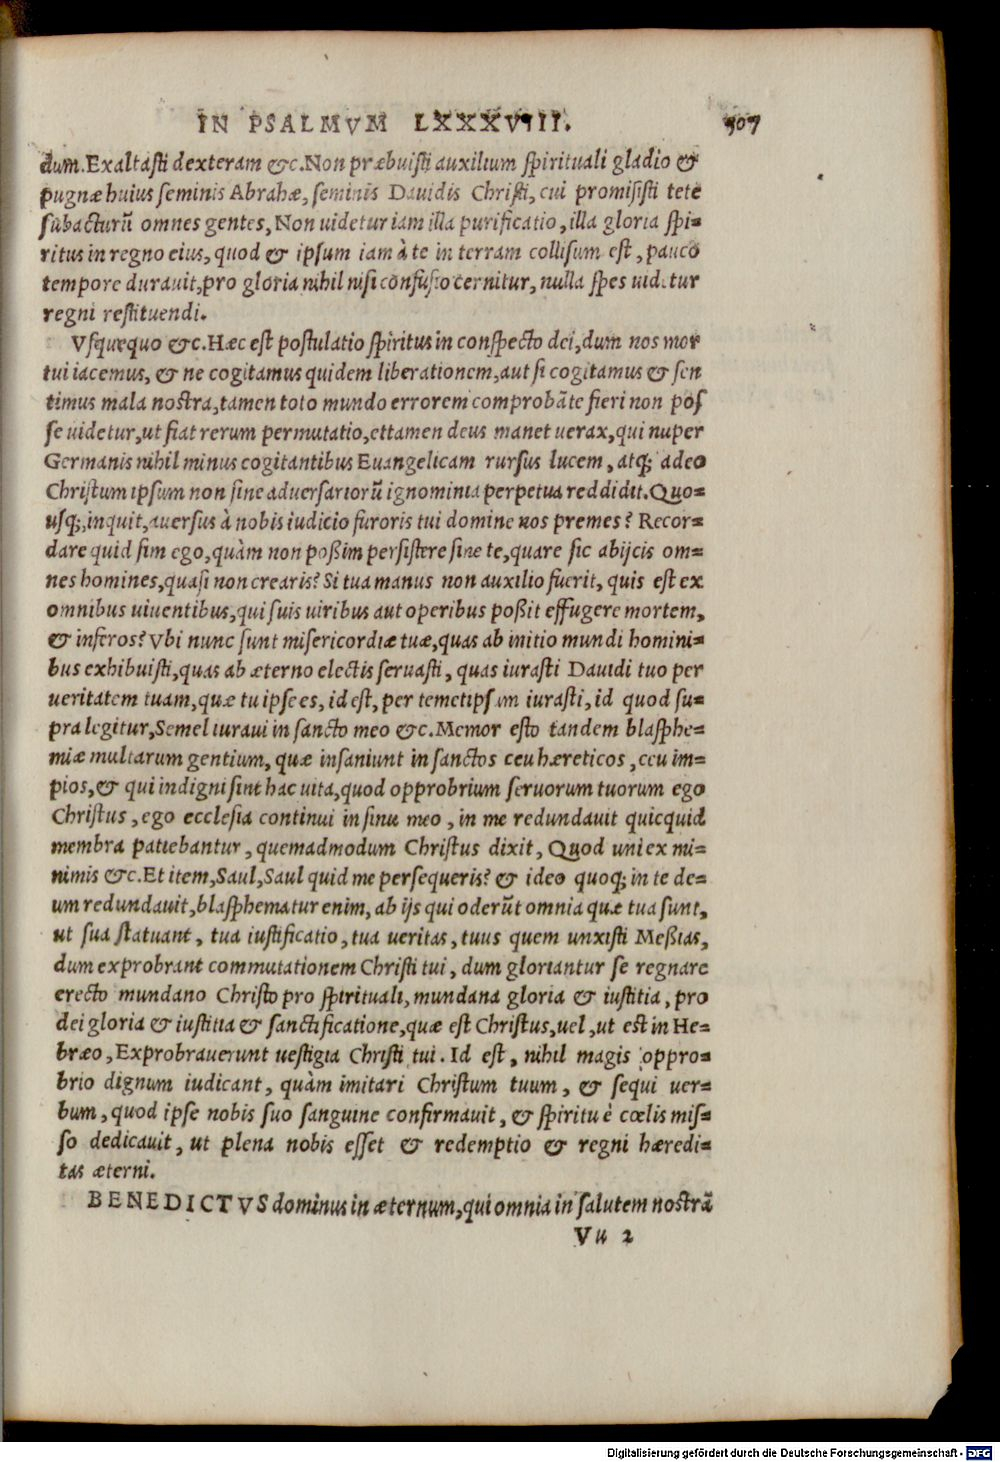 IN PSALMVM LXXXVIII. 507
dum. Exaltasti dexteram &c. Non præbuisti auxilium spirituali gladio &
pugnæ huius seminis Abrahæ, seminis Dauidis Christi, cui promisisti te te
subacturū omnes gentes, Non uidetur iam illa purificatio, illa gloria spi=
ritus in regno eius, quod & ipsum iam à te in terram collisum est, pauco
tempore durauit, pro gloria nihil nisi confusio cernitur, nulla spes uidetur
regni restituendi.
Vsquequo &c. Hæc est postulatio spiritus in conspecto dei, dum nos mor
tui iacemus, & ne cogitamus quidem liberationem, aut si cogitamus & sen
timus mala nostra, tamen toto mundo errorem comprobāte fieri non pos
se uidetur, ut fiat rerum permutatio, et tamen deus manet uerax, qui nuper
Germanis nihil minus cogitantibus Euangelicam rursus lucem, atq; adeo
Christum ipsum non sine aduersariorū ignominia perpetua reddidit. Quo=
usq;, inquit, auersus à nobis iudicio furoris tui domine nos premes? Recor=
dare quid sim ego, quàm non poßim persistere sine te, quare sic abijcis om=
nes homines, quasi non crearis? Si tua manus non auxilio fuerit, quis est ex
omnibus uiuentibus, qui suis uiribus aut operibus poßit effugere mortem,
& inferos? Vbi nunc sunt misericordiæ tuæ, quas ab initio mundi homini=
bus exhibuisti, quas ab æterno electis seruasti, quas iurasti Dauidi tuo per
ueritatem tuam, quæ tu ipse es, id est, per temetipsum iurasti, id quod su=
pra legitur, Semel iuraui in sancto meo &c. Memor esto tandem blasphe=
miæ multarum gentium, quæ insaniunt in sanctos ceu hæreticos, ceu im=
pios, & qui indigni sint hac uita, quod opprobrium seruorum tuorum ego
Christus, ego ecclesia continui in sinu meo, in me redundauit quicquid
membra patiebantur, quemadmodum Christus dixit, Quod uni ex mi=
nimis &c. Et item, Saul, Saul quid me persequeris? & ideo quoq; in te de=
um redundauit, blasphematur enim, ab ijs qui oderūt omnia quæ tua sunt,
ut sua statuant, tua iustificatio, tua ueritas, tuus quem unxisti Meßias,
dum exprobrant commutationem Christi tui, dum gloriantur se regnare
erecto mundano Christo pro spirituali, mundana gloria & iustitia, pro
dei gloria & iustitia & sanctificatione, quæ est Christus, uel, ut est in He=
bræo, Exprobrauerunt uestigia Christi tui. Id est, nihil magis oppro=
brio dignum iudicant, quàm imitari Christum tuum, & sequi uer=
bum, quod ipse nobis suo sanguine confirmauit, & spiritu è cœlis mis=
so dedicauit, ut plena nobis esset & redemptio & regni hæredi=
tas æterni.
BENEDICTVS dominus in æternum, qui omnia in salutem nostrā
Vu 2
Digitalisierung gefördert durch die Deutsche Forschungsgemeinschaft - DFG